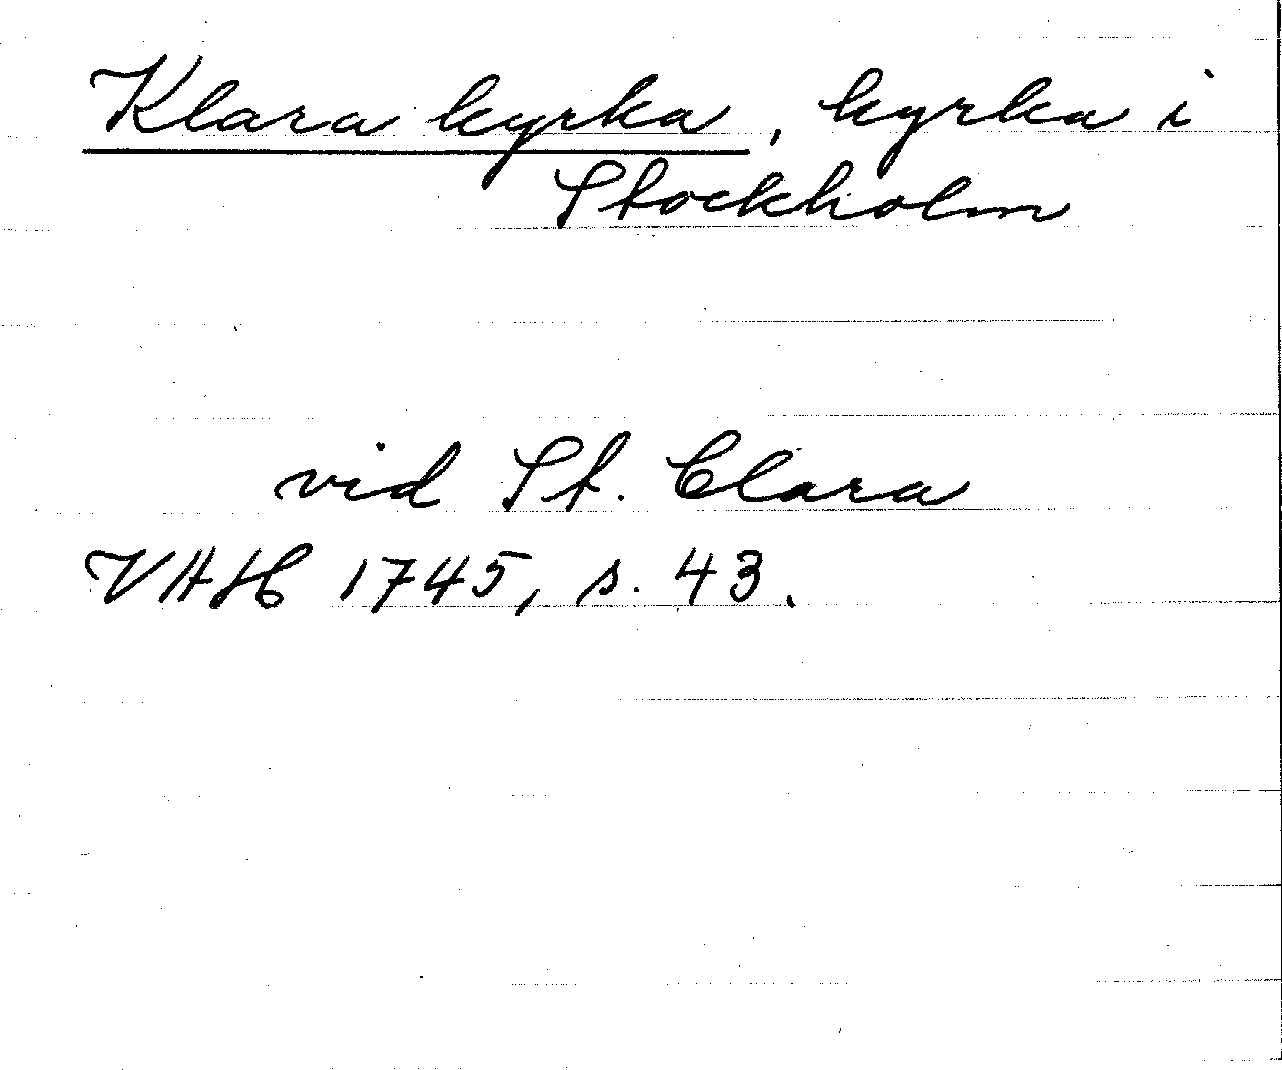 Klara kyrka, kyrka i
Stockholm
vid St. Clara
VHH 1745, s. 43.